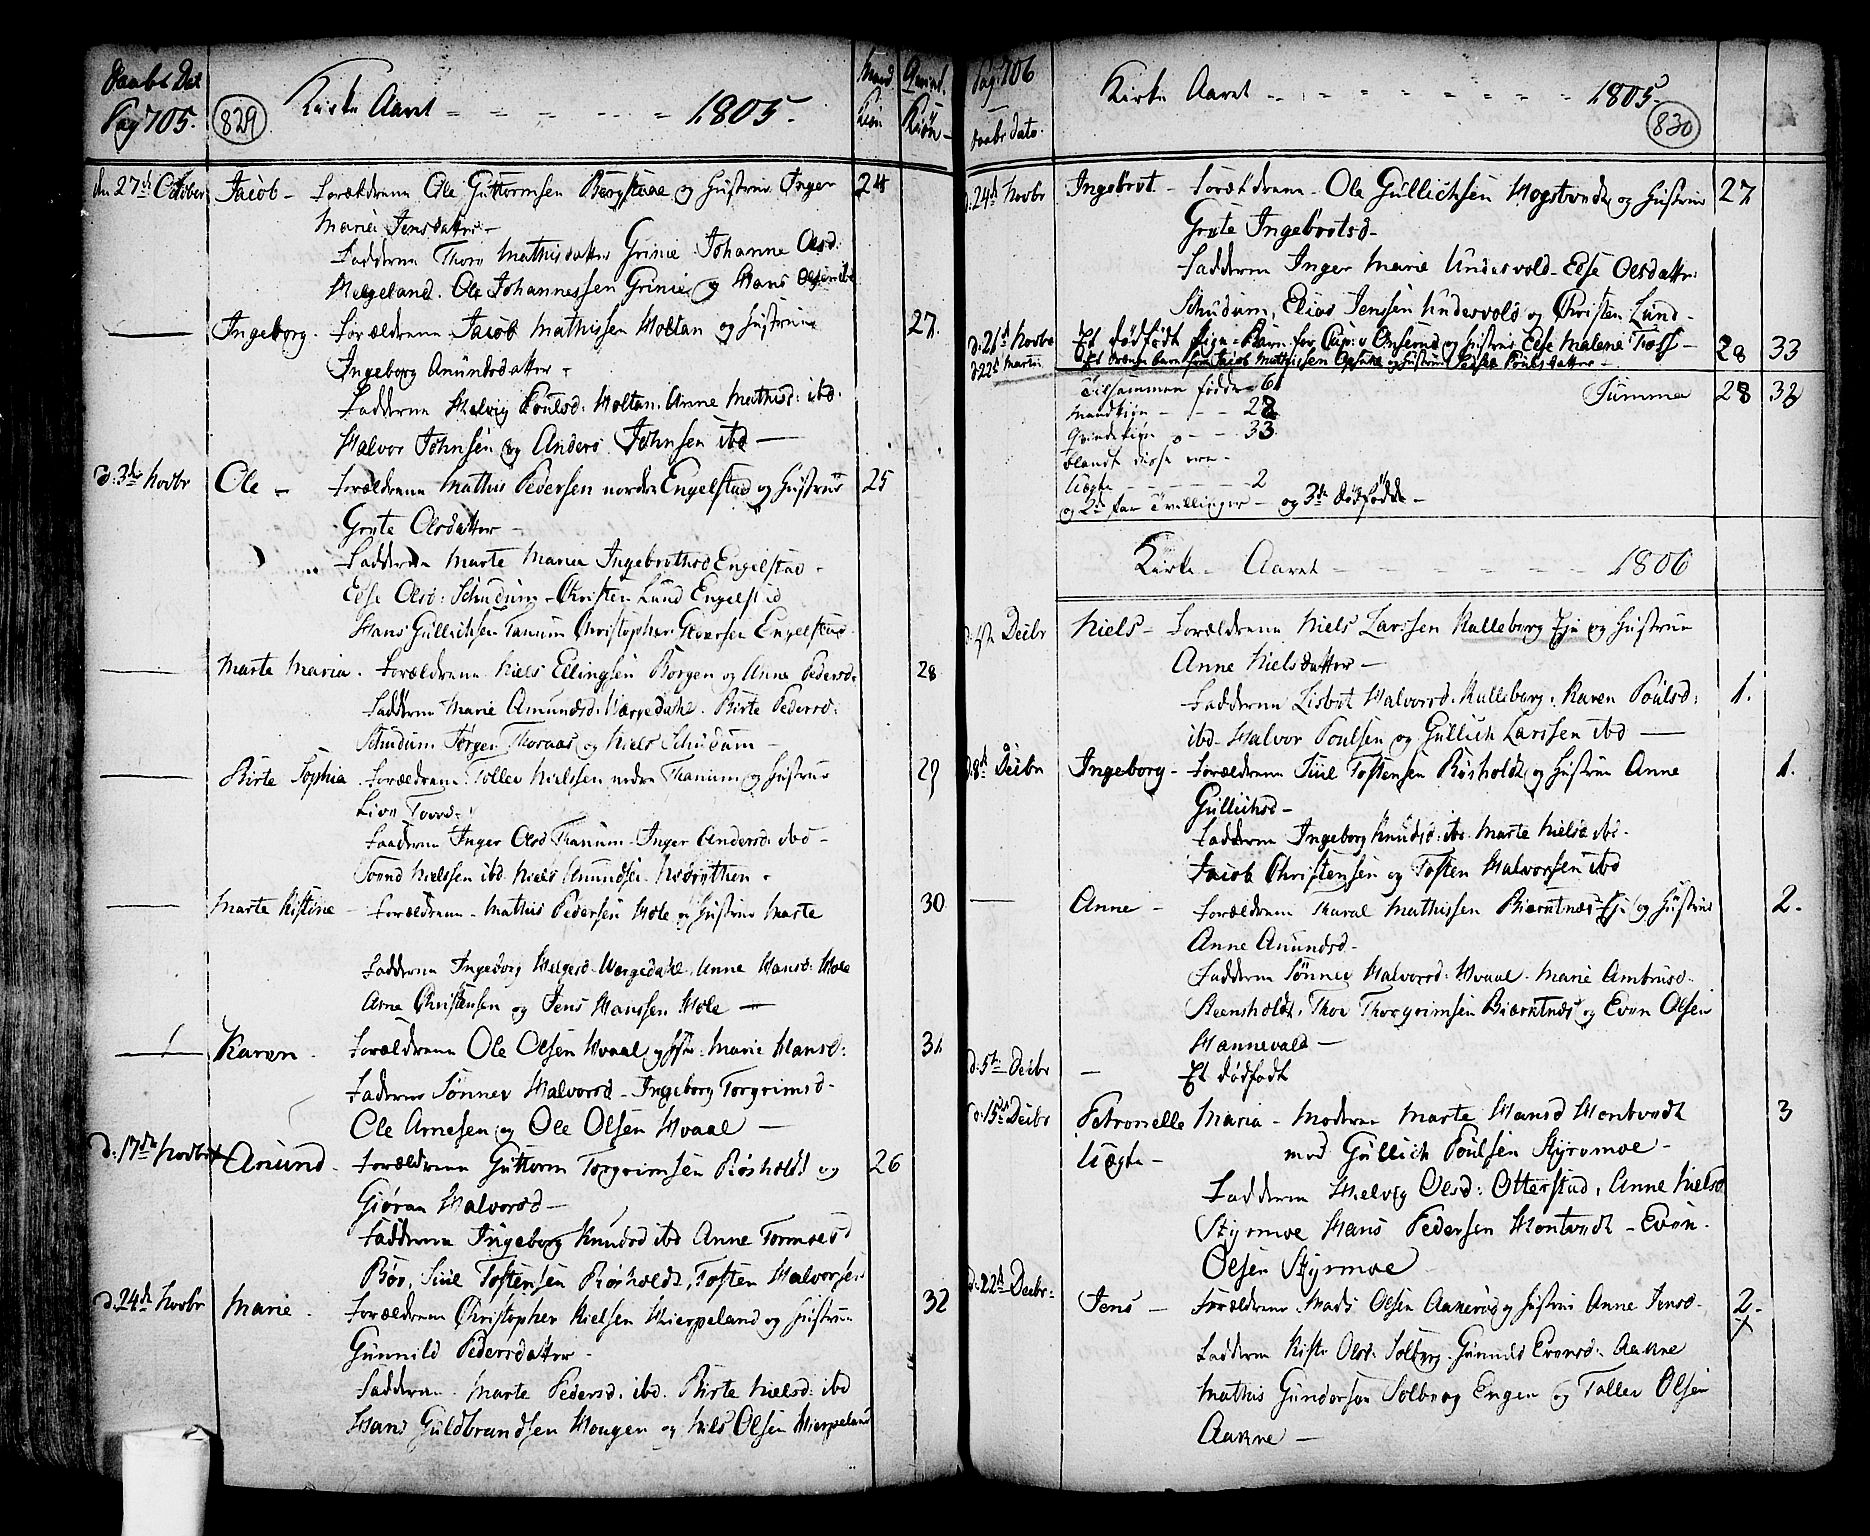 Daabs Dat
Pag 705.
829
Kirke Aaret 1805.
Mand Kiøn
Qvind. Kiøn
den 27de October Jacob - Forældrene Ole Guttormsen Bergstuae og Hustrue Inger 24
Marie Jensdatter -
Fadderne Thore Mathisdatter Grinie Johanne Olsd:
Helgeland. Ole Johannessen Grinie og Hans Olsen ibd
Ingeborg. Forældrene Jacob Mathissen Holtan og Hustrue 27.
Ingeborg Amundsdatter -
Fadderne Helvig Poulsd: Holtan. Anne Mathisd: ibd:
Halvor Johnsen og Anders Johnsen ibd -
d: 3de Novbr Ole - Forældrene Mathis Pedersen nordre Engelstad og Hustrue 25
Grete Olsdatter -
Fadderne Marte Maria Ingebrethsd Engelstad -
Else Olsd: Schudum - Christen Lund Engelstad
Hans Gullichsen Tanum Christopher Evensen Engelstad
Marte Maria. Forældrene Niels Ellingsen Borgen og Anne Pedersd: 28
Fadderne Marie Amundsd: Værgedahl. Birte Pedersd:
Schudum Jørgen Thoraas og Niels Schudum -
Birte Sophia. Forældrene Tollev Nielssen nedre Thanum og Hustrue 29
Live Tovsd:
Faaderne Inger Olsd Thanum - Inger Andersd: ibd -
Nielssen ibd. Niels Amundsen
Marte Kistine - Forældrene - Mathis Pedersen Hole og Hustrue Marte 30
Fadderne Ingeborg Helgesd. Værgedahl. Anne Hansd: Hole
Arne Christensen og Jens Hanssen Hole -
Karen. Forældrene Ole Olsen Hvaal og Hstr: Marie Hansd: 31
Faderne Sønnev Halvorsd - Ingeborg Torgrimsd -
Ole Arnesen og Ole Olsen Hvaal -
d: 17de Novbr Anund - Forældrene Guttorm Torgrimsen Røsholdt og 26
Giøran Halvorsd -
Fadderne Ingeborg Knudsd ibd Anne Tormoesd
Bøe, Siul Tostensen Røsholdt, Tosten Halvorsen
d: 24de Novbr Marie. Forældrene Christopher Nielsen Kierpeland og Hustrue 32
Gunnild Pedersdatter -
Fadderne. Marte Pedersd. ibd. Birte Nielsd: ibd
Hans Guldbrandsen Hougen og Niels Olsen Kierpeland
Pag: 706
Daabs dato.
Kirke Aaret 1805.
830
d: 24de Novbr Ingebret - Forældrene - Ole Gullichsen Hogstvedt og Hustrue 27
Grete Ingebretsd -
Fadderne Inger Marie Undersvold. Else Olsdatter
Schudum, Elias Jenssen Undersvold og Christen Lund -
d: 21de Novbr Et dødfødt Pige-Barn for Cap: v Onserud og Hustrue Else Malene Foss - 28 33
d 22de Martii Et Drenge barn for Jacob Mathisen og Hustrue Poulsdatter -
Tilsammen fødde 61 Summa 28 33
Mandkiøn - - - 28
Qvindekiøn - - 33
blandt disse ere -
Uægte - - - 2
og 2de Par Tvillinger - og 3de dødfødde -
Kirke - Aaret - 1806
Decbr Niels - Forældrene Niels Larssen Kulleborg Eje og Hustrue
Anne Nielsdatter -
Fadderne Lisbet Halvorsd. Kulleborg. Karen Poulsd: 1.
ibd - Halvor Poulsen og Gullich Larssen ibd -
d: 8de Decbr Ingeborg - Forældrene Siul Tostensen Røsholdt og Hustrue Anne 1.
Gullichsd -
Fadderne Ingeborg Knudsd: ibd. Marte Nielsd ibd -
Jacob Christensen og Tosten Halvorsen ibd
Anne - Forældrene Haral Mathissen Biærntnæs Eje og Hustrue 2.
Anne Amundsd -
Fadderne Sønnev Halvorsd: Hvaal. Marie Ambrusd.
Steensholdt, Thor Thorgrimsen Biærntnæs og Even Olsen
Hannevald -
d: 5te Decbr - Et dødfødt
d: 15de Decbr Petronelle Maria - Moderen Marte Hansd Hontvedt 3
Uægte - med Gullich Poulsen Styrmoe -
Fadderne Helvig Olsd: Otterstad, Anne Nielsd
Styrmoe Hans Pedersen Hontvedt - Even
Olsen Styrmoe
d: 22de Decbr: Jens - Forældrene Mads Olsen Aakerød og Hustrue Anne Jensd. 2.
Fadderne Kisti Olsd: Solberg. Gunnild Evensd: Aakne
Mathis Gundersen Solberg Engen og Tollev Olsen
Aakne -